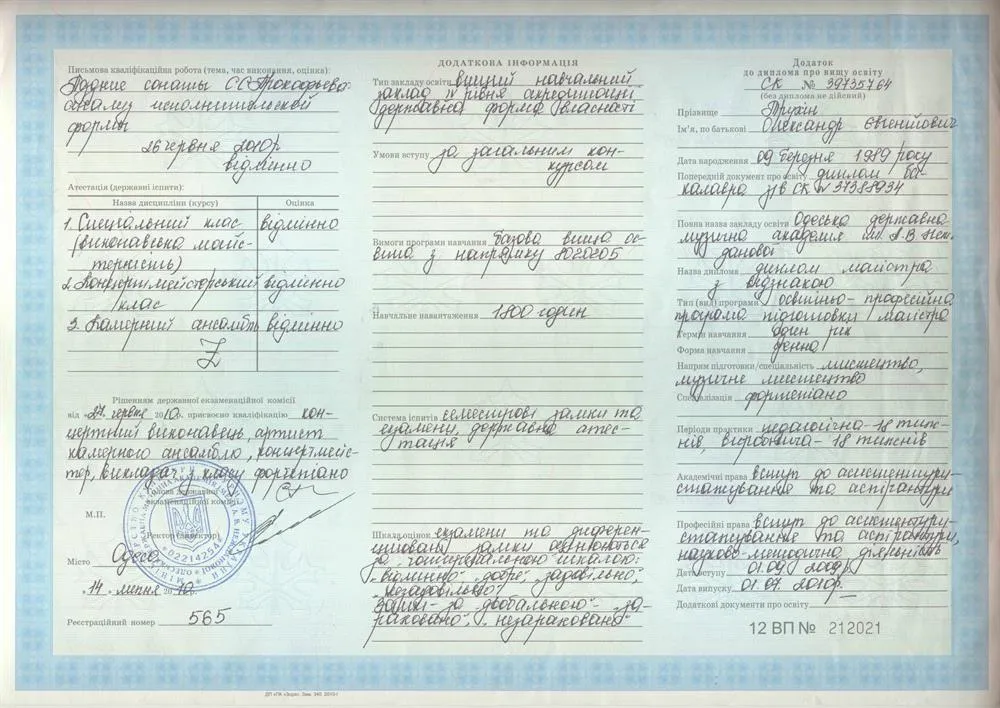 Письмова кваліфікаційна робота (тема, час виконання, оцінка):
сонаты С.С. Прокофьева
исполнительской
формы
26 червня 2010р.
відмінно
Атестація (державні іспити):
Назва дисципліни (курсу) Оцінка
1. Спеціальний клас відмінно
(виконавська майс-
терність)
2. Концертмейстерський відмінно
клас
3. Камерний ансамбль відмінно
Z
Рішенням державної екзаменаційної комісії
від "27" червня 2010р. присвоєно кваліфікацію кон-
цертний виконавець, артист
камерного ансамблю, концертмейс-
тер, викладач у класу фортепіано
Голова державної
екзаменаційної комісії
М.П.
Ректор (директор)
02214254
Місто Одеса
"14" липня 2010.
Реєстраційний номер 565
ДОДАТКОВА ІНФОРМАЦІЯ
Тип закладу освіти вищий навчальний
заклад IV рівня акредитації
державної форми власності
Умови вступу за загальним кон-
курсом
Вимоги програми навчання базова вища ос-
віта з напрямку 8020205
Навчальне навантаження 1800 годин
Система іспитів семестрові заліки та
екзамени, державна атес-
тація
Шкала оцінок екзамени та диферен-
ційовані заліки оцінюються
за чотирибальною шкалою:
"відмінно", "добре", "задовільно",
"незадовільно"
заліки - за двобальною - "за-
раховано", "незараховано"
Додаток
до диплома про вищу освіту
СК № 39735764
(без диплома не дійсний)
Прізвище Трухін
Ім'я, по батькові Олександр Євгенійович
Дата народження 09 березня 1989 року
Попередній документ про освіту диплом ба-
калавра НВ СК № 37388934
Повна назва закладу освіти Одеська державна
музична академія ім. А.В. Неж-
данової
Назва диплома диплом магістра
з відзнакою
Тип (вид) програми освітньо-професійна
програма підготовки магістра
Термін навчання один рік
Форма навчання денна
Напрям підготовки/спеціальність мистецтво,
музичне мистецтво
Спеціалізація фортепіано
Періоди практики педагогічна - 18 тиж-
нів, виробнича - 18 тижнів
Академічні права вступ до асистентури-
стажування та аспірантури
Професійні права вступ до асистентури-
стажування та аспірантури,
науково-методична діяльність
Дата вступу 01.09.2009р.
Дата випуску 01.07.2010р.
Додаткові документи про освіту
12 ВП № 212021